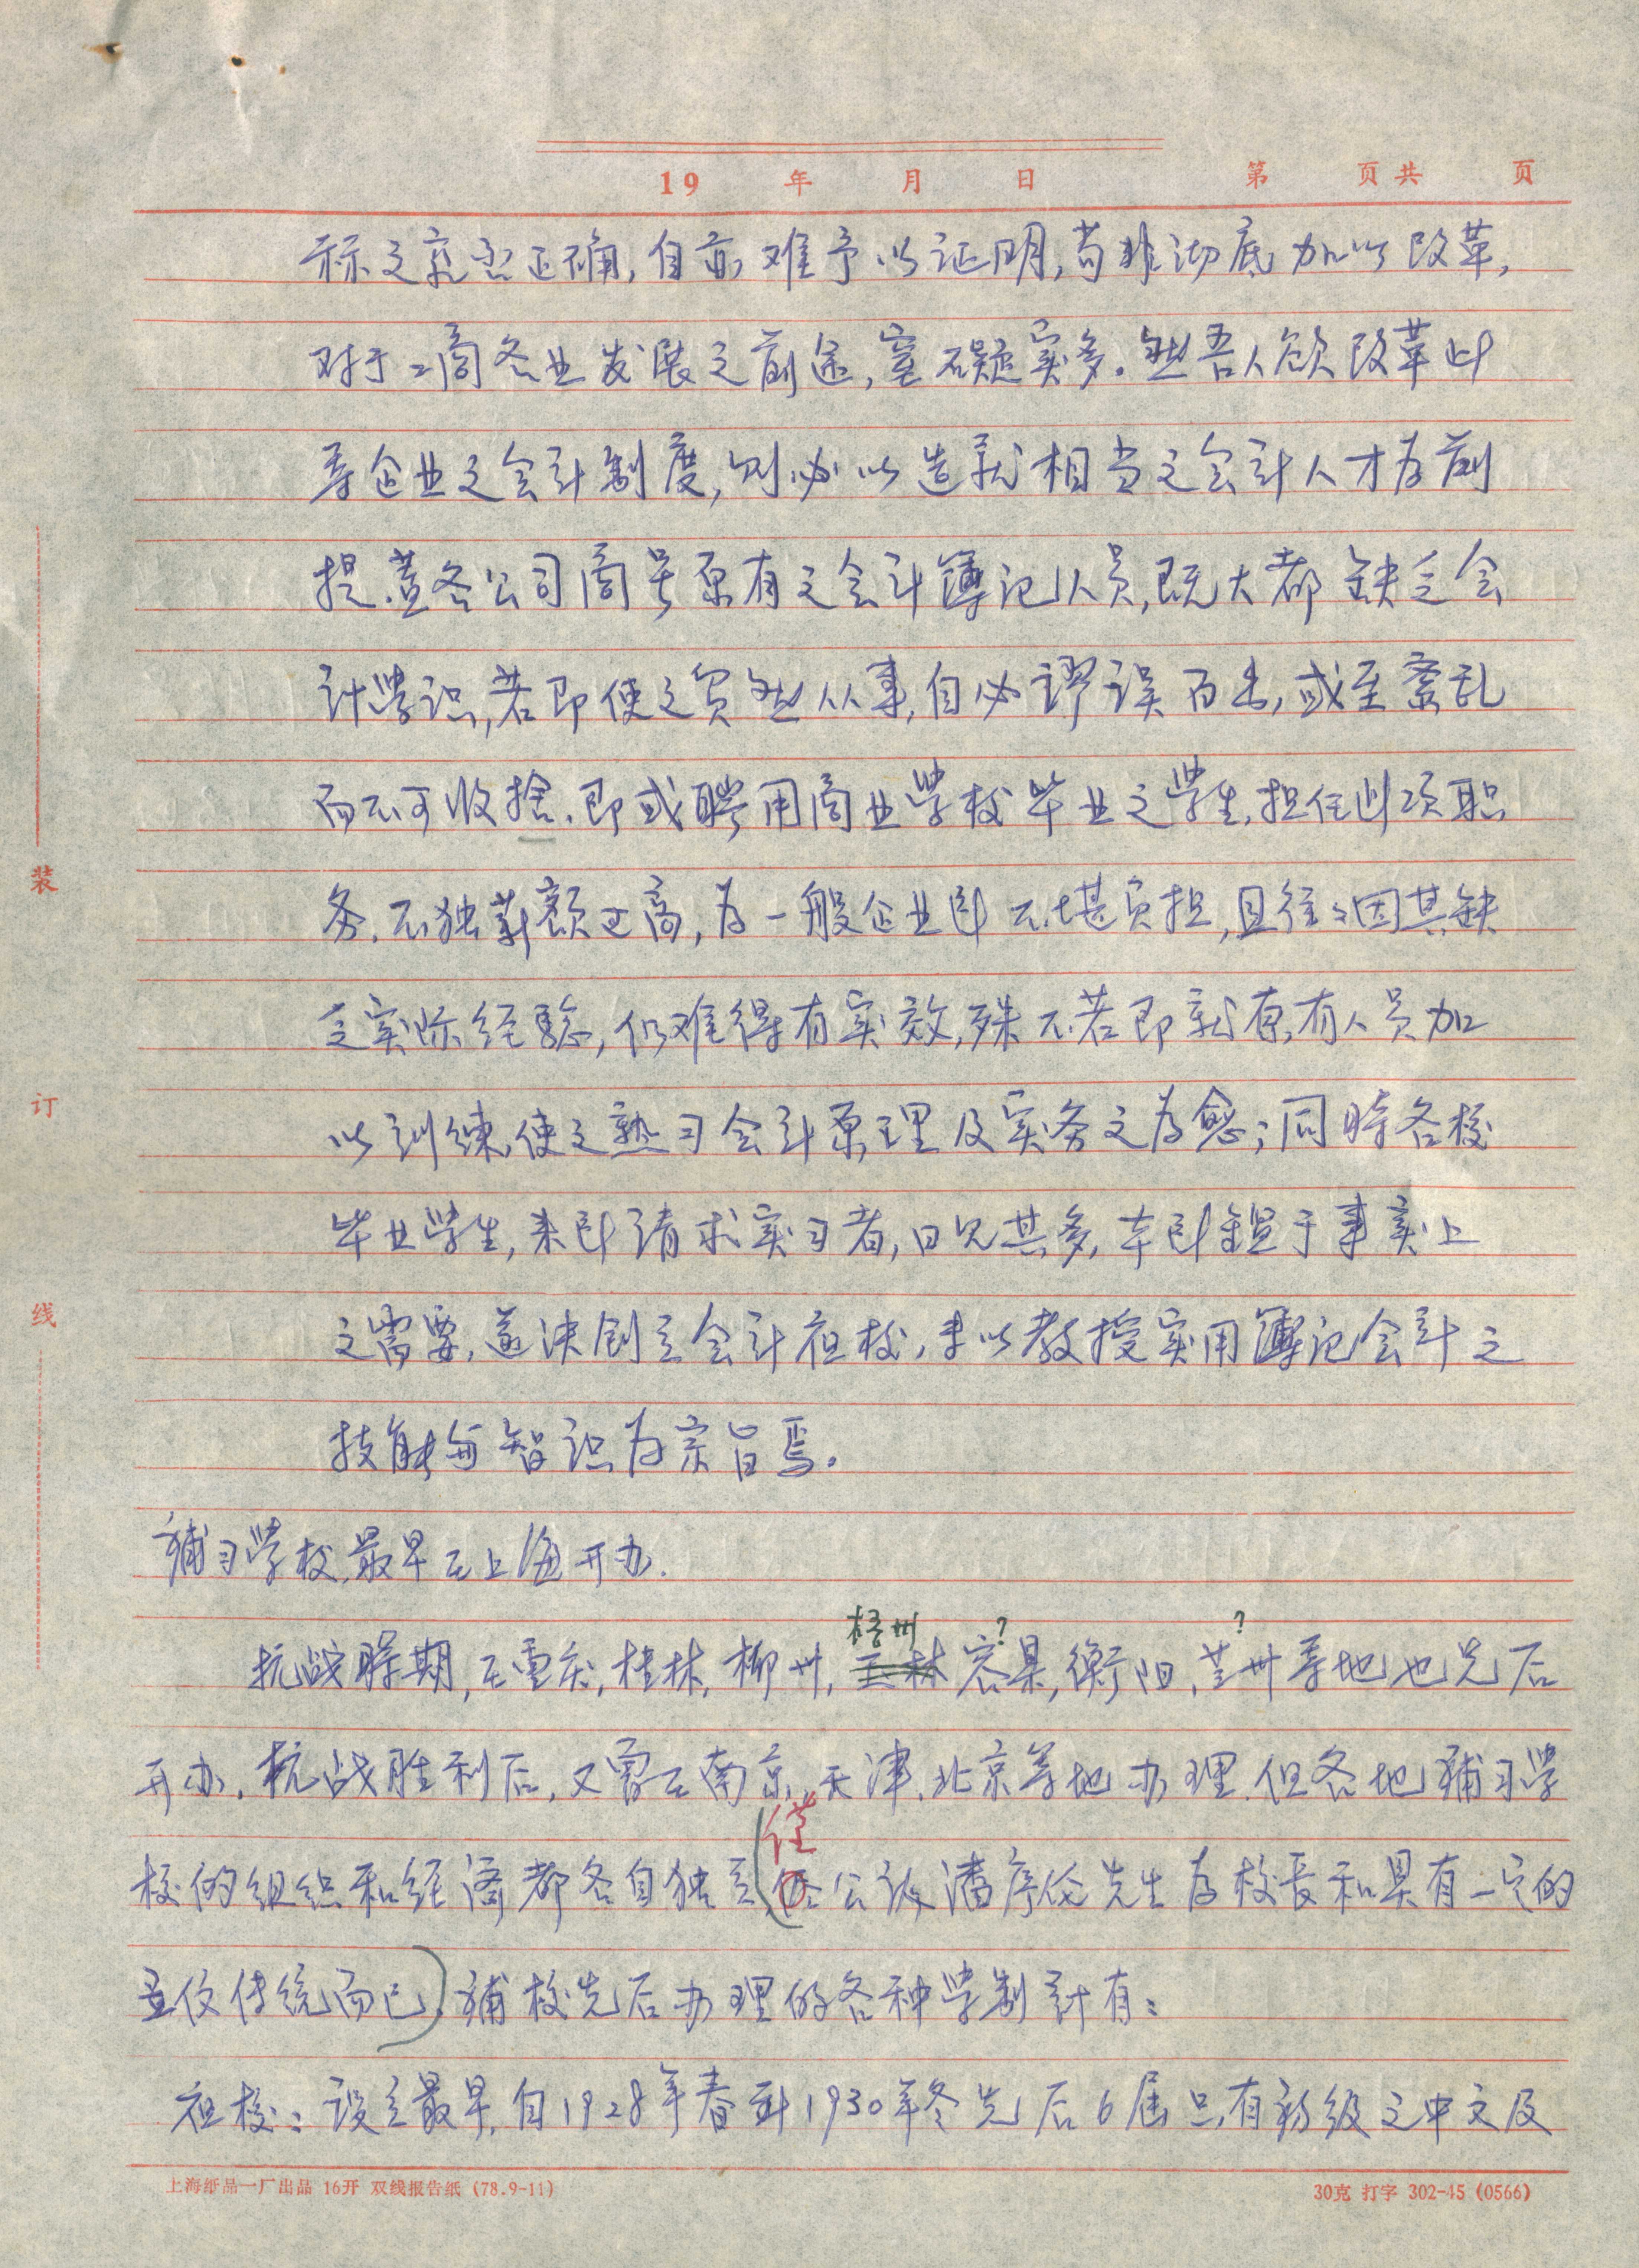 19 年 月 日 第 页共 页
示之究否正确,自亦难予以证明,苟非沏底加以改革,
对于工商各业发展之前途,窒碍实多。然吾人欲改革此
等企业之会计制度,则必以造就相当之会计人才为前
提,盖各公司商号原有之会计簿记人员,既大都缺乏会
计学识,若即使之贸然从事,自必谬误百出,或至紊乱
而不可收捨,即或聘用商业学校毕业之学生,担任此项职
务,不独薪额过高,为一般企业所不堪负担,且往々因其缺
乏实际经验,仍难得有实效,殊不若即就原有人员加
以训练,使之熟习会计原理及实务之为愈;同時各校
毕业学生,来所请求实习者,日见其多,本所鑑于事实上
之需要,遂决创立会计夜校,专以教授实用簿记会计之
技能与智识为宗旨焉。
辅习学校,最早在上海开办.
梧州 ? ?
抗战時期,在重庆,桂林,柳州,玉林容果,衡阳,兰州等地也先后
开办,抗战胜利后,又曾在南京,天津,北京等地办理.但各地辅习学
僅
校的组织和经济都各自独立,(公认潘序伦先生为校长和具有一定的
立信传统而已)辅校先后办理的各种学制计有:
夜校:设立最早,自1928年春到1930年冬先后6届只有初级之中文及
装
订
线
上海纸品一厂出品 16开 双线报告纸 (78.9-11)
30克 打字 302-45 (0566)